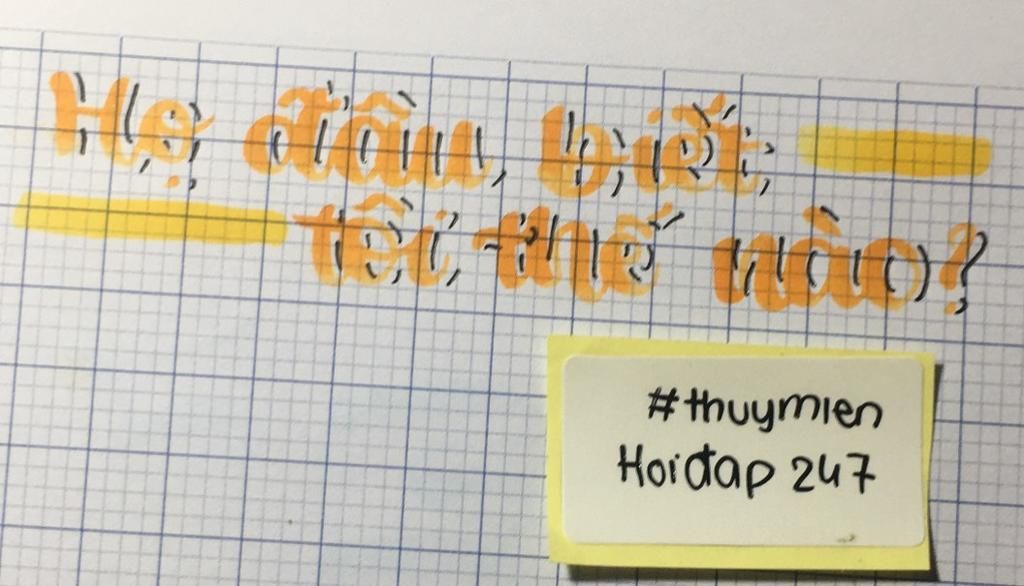 Họ đâu, biết,
tôi, thế nào?
#thuymien
Hoidap 247